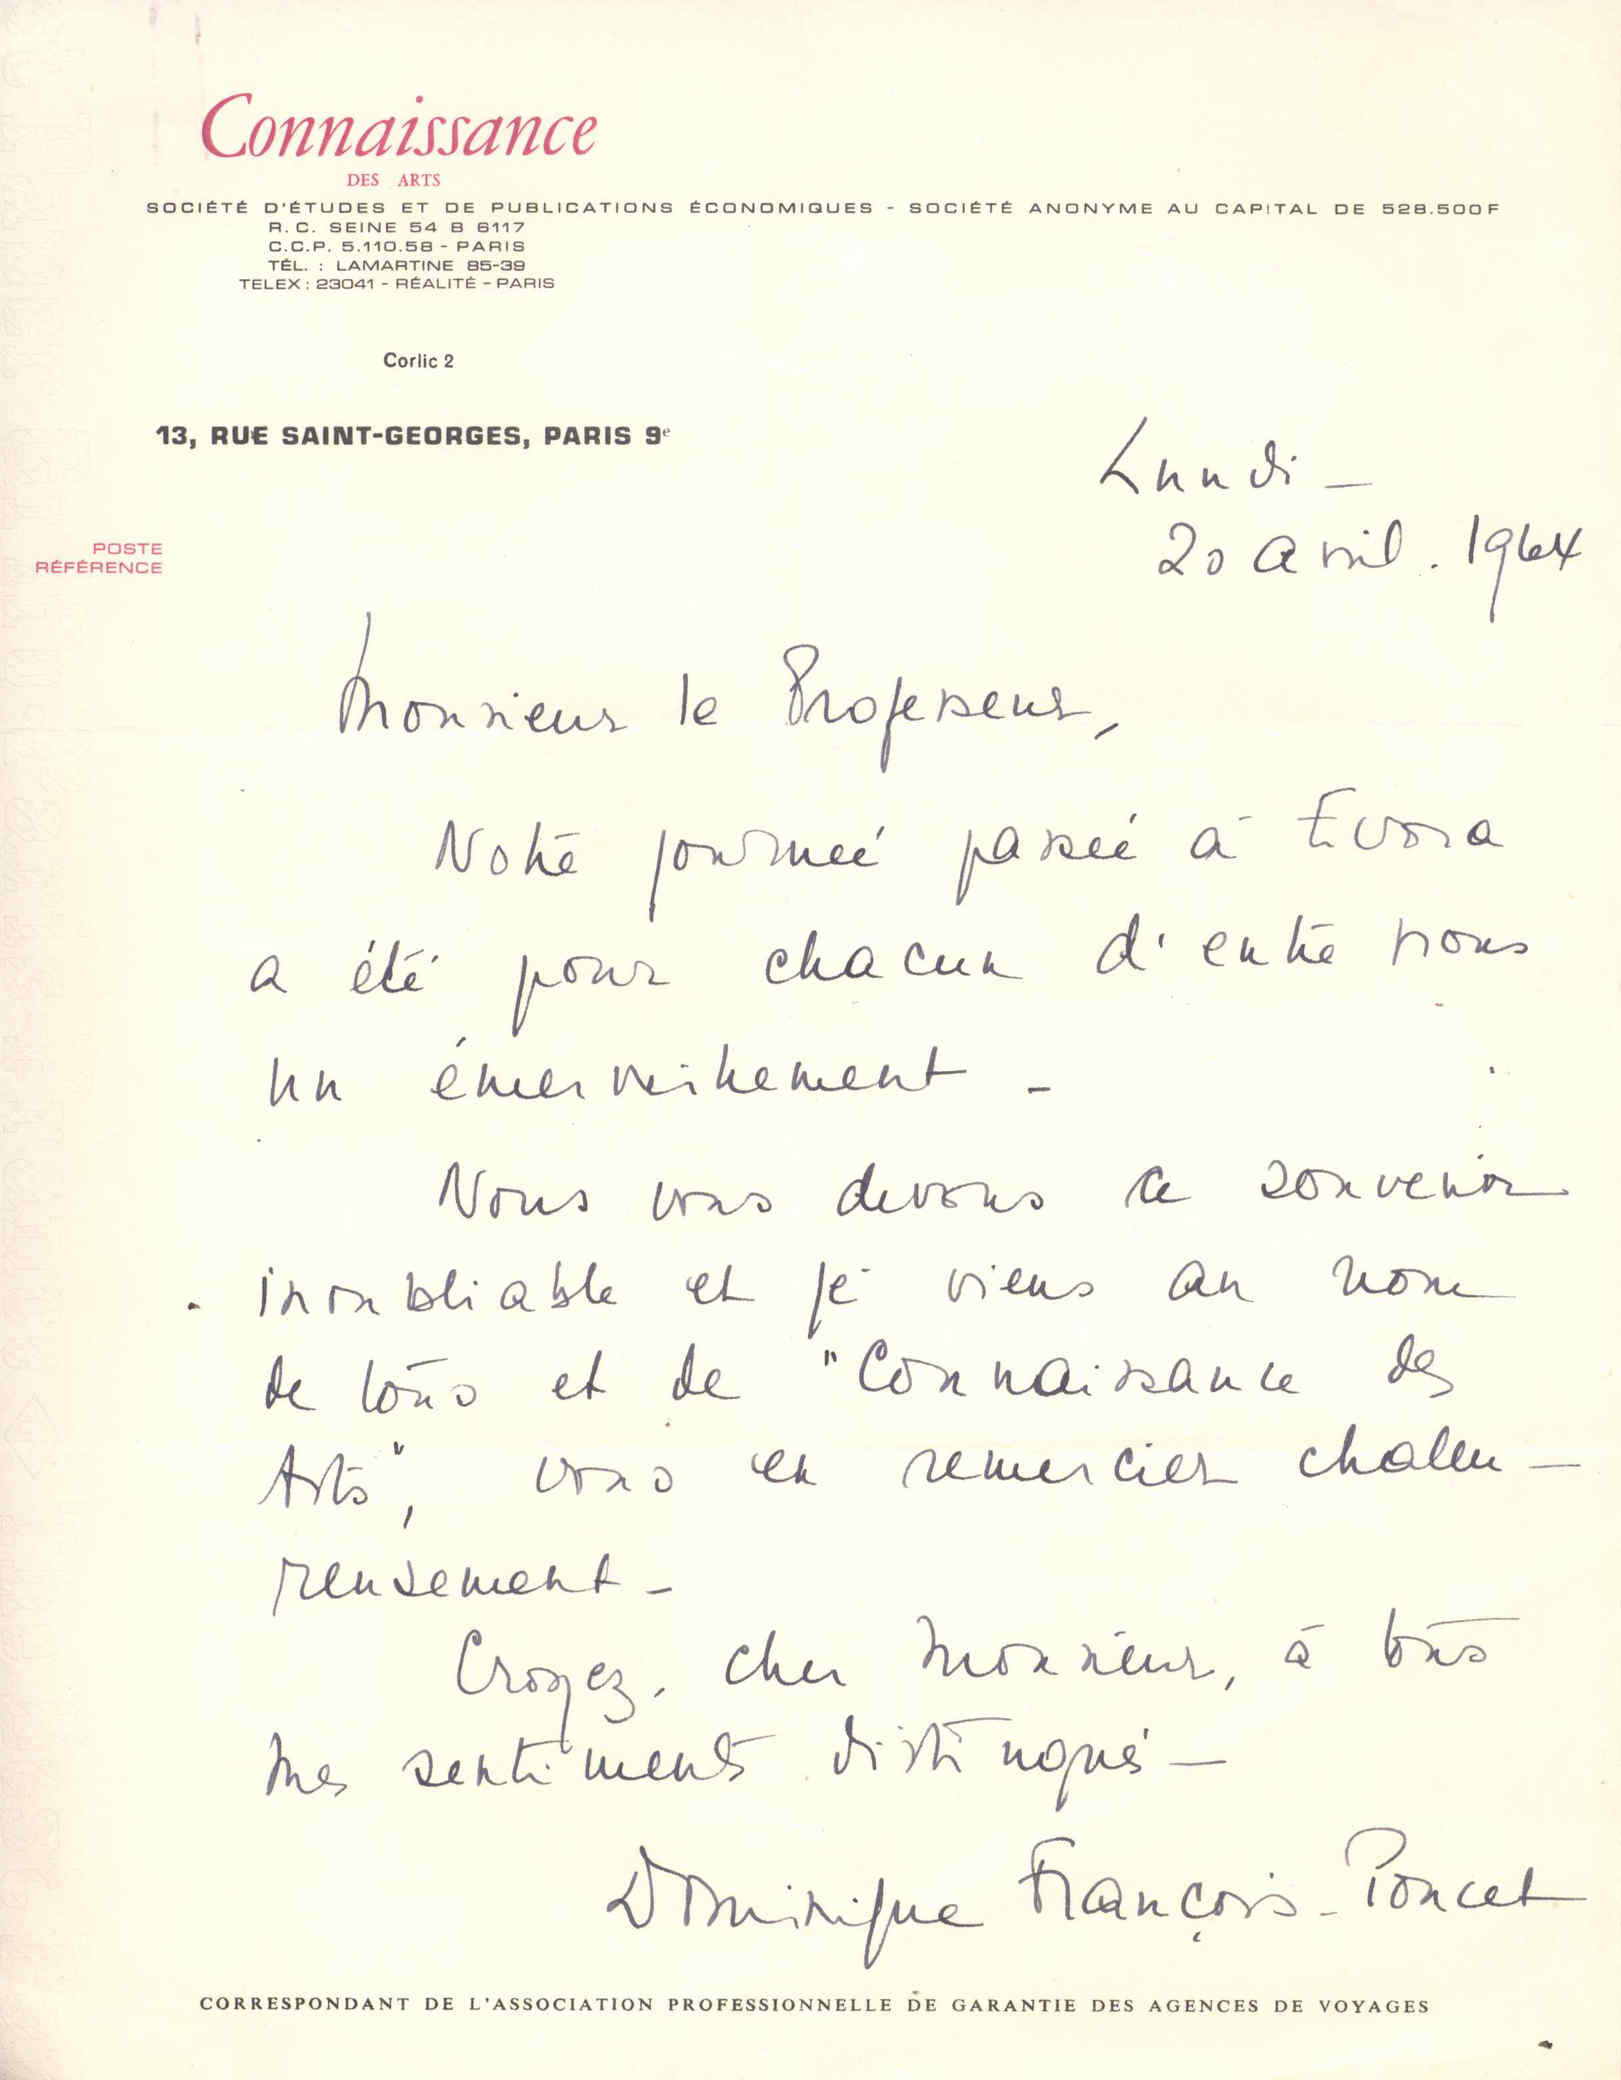 Connaissance
DES ARTS
SOCIÉTÉ D'ÉTUDES ET DE PUBLICATIONS ÉCONOMIQUES - SOCIÉTÉ ANONYME AU CAPITAL DE 528.500 F
R.C. SEINE 54 B 6117
C.C.P. 5.110.58 - PARIS
TÉL. : LAMARTINE 85-39
TELEX : 23041 - RÉALITÉ - PARIS
Corlic 2
13, RUE SAINT-GEORGES, PARIS 9e
Lundi -
20 avril . 1964
POSTE
RÉFÉRENCE
Monsieur le Professeur,
Notre journée passée à Evora
a été pour chacun d'entre nous
un émerveillement -
Nous vous devons ce souvenir
inoubliable et je viens au nom
de tous et de "Connaissance des
Arts", vous en remercier chaleu-
reusement -
Croyez, cher Monsieur, à tous
mes sentiments distingués -
Dominique François-Poncet
CORRESPONDANT DE L'ASSOCIATION PROFESSIONNELLE DE GARANTIE DES AGENCES DE VOYAGES